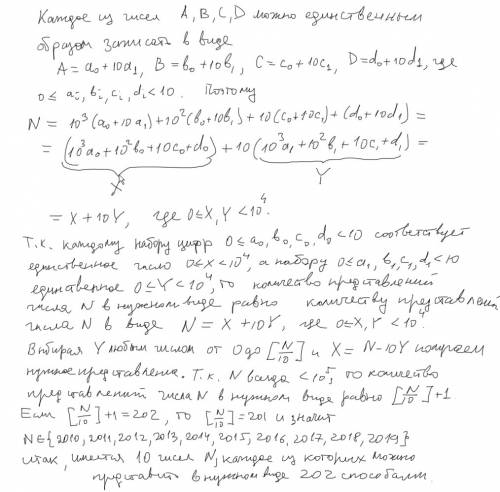 Каждое из чисел A, B, C, D можно единственным
образом записать в виде
A = a₀+10a₁, B = b₀+10b₁, C = c₀+10c₁, D = d₀+10d₁, где
0 ≤ aᵢ, bᵢ, cᵢ, dᵢ < 10. Поэтому
N = 10³(a₀+10a₁)+10²(b₀+10b₁)+10(c₀+10c₁)+(d₀+10d₁) =
= (10³a₀+10²b₀+10c₀+d₀) + 10(10³a₁+10²b₁+10c₁+d₁) =
X Y
= X+10Y, где 0≤X,Y<10⁴.
Т.к. каждому набору цифр 0≤a₀,b₀,c₀,d₀<10 соответствует
единственное число 0≤X<10⁴, а набору 0≤a₁,b₁,c₁,d₁<10
единственное 0≤Y<10⁴, то количество представлений
числа N в нужном виде равно количеству представлений
числа N в виде N = X+10Y, где 0≤X,Y<10⁴.
Выбирая Y любым числом от 0 до [N/10] и X = N-10Y получаем
нужное представление. Т.к. N всегда <10⁵, то количество
представлений числа N в нужном виде равно [N/10]+1
Если [N/10]+1=202, то [N/10]=201 и значит
N∈{2010, 2011, 2012, 2013, 2014, 2015, 2016, 2017, 2018, 2019}
итак, имеется 10 чисел N, каждое из которых можно
представить в нужном виде 202 способами.